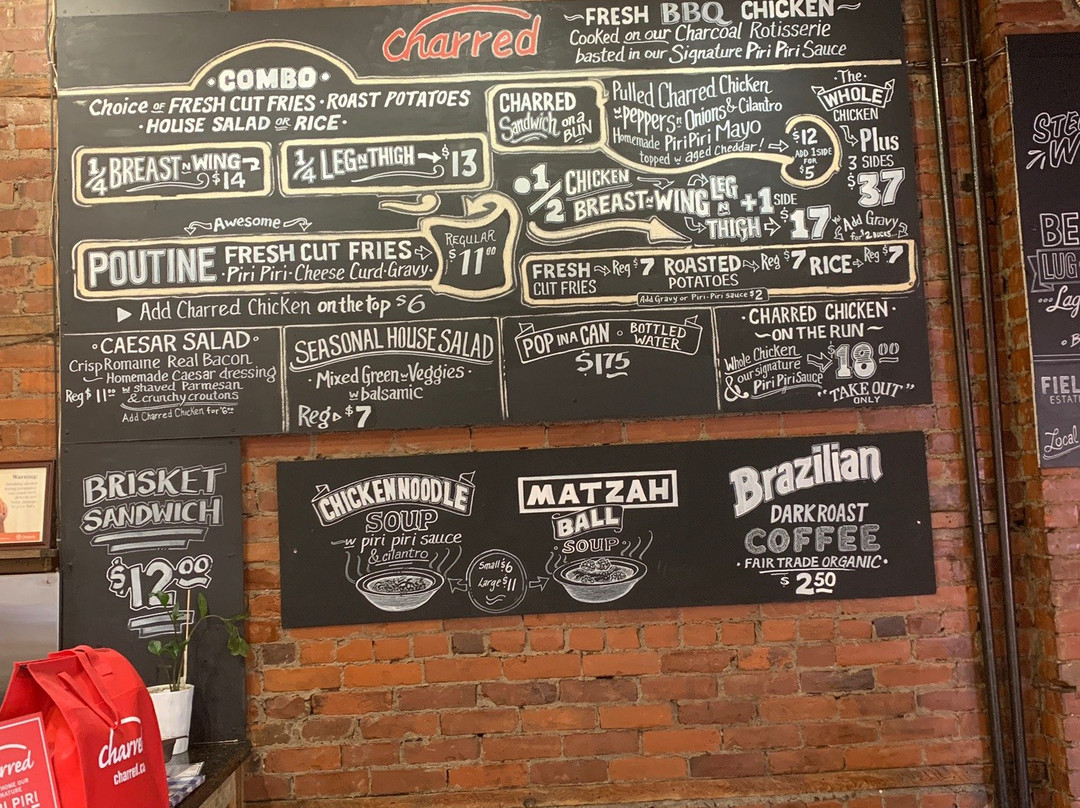 charred
~FRESH BBQ CHICKEN~
Cooked on our Charcoal Rotisserie
basted in our Signature Piri Piri Sauce
·COMBO·
Choice OF FRESH CUT FRIES · ROAST POTATOES
· HOUSE SALAD OR RICE ·
1/4 BREAST N WING $14
1/4 LEG N THIGH → $13
CHARRED
Sandwich on a
BUN
Pulled Charred Chicken
w peppers n Onions & Cilantro
Homemade PiriPiri Mayo
topped w aged Cheddar!
$12
ADD 1 SIDE
FOR
$5
The
WHOLE
CHICKEN
Plus
3 SIDES
$37
Add Gravy
for 2 BUCKS
1/2 CHICKEN
BREAST N WING LEG N THIGH + 1 SIDE
$17
~Awesome~
POUTINE FRESH CUT FRIES
·Piri Piri·Cheese Curd·Gravy·
REGULAR
$11.00
▶ Add Charred Chicken on the top $6
FRESH CUT FRIES Reg $7 ROASTED POTATOES Reg $7 RICE Reg $7
Add Gravy or Piri-Piri sauce $2
· CAESAR SALAD ·
Crisp Romaine Real Bacon
Homemade Caesar dressing
w shaved Parmesan
& crunchy croutons
Reg $11.00
Add Charred Chicken for $6.00
SEASONAL HOUSE SALAD
· Mixed Green w Veggies ·
w balsamic
Reg $7
POP IN A CAN · BOTTLED WATER
$1.75
· CHARRED CHICKEN ·
~ON THE RUN~
Whole Chicken
& our signature
Piri Piri Sauce
$18.00
"TAKE OUT"
ONLY
BRISKET
SANDWICH
$12.00
CHICKEN NOODLE
SOUP
w piri piri sauce
& cilantro
Small $6
Large $11
MATZAH
BALL
SOUP
Brazilian
DARK ROAST
COFFEE
· FAIR TRADE ORGANIC ·
$2.50
LUG
Local
FIEL
ESTAT
Warning:
Charred
charred.ca
rred
PIRI